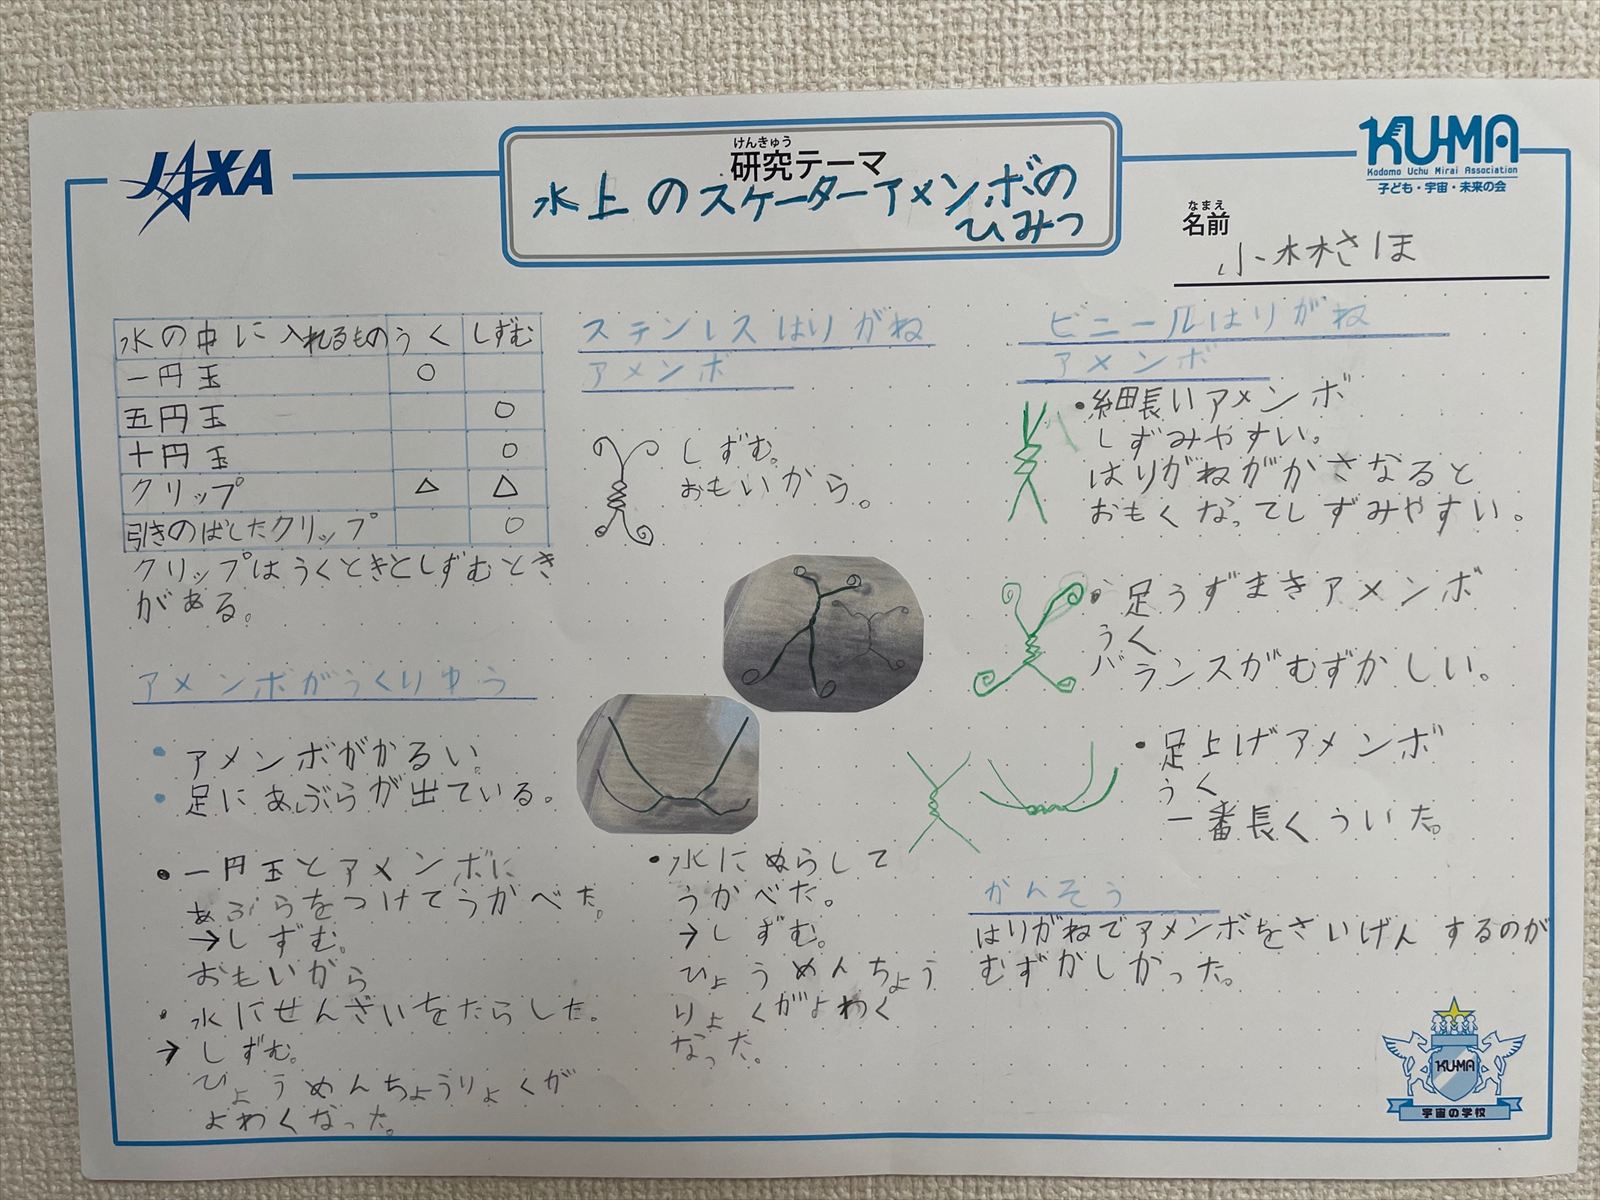 JAXA
けんきゅう
研究テーマ
水上のスケーターアメンボの
ひみつ
KU-MA
Kodomo Uchu Mirai Association
子ども・宇宙・未来の会
なまえ
名前
小林さほ
水の中に入れるもの うく しずむ
一円玉 ○
五円玉 ○
十円玉 ○
クリップ △ △
引きのばしたクリップ ○
クリップはうくときとしずむとき
がある。
アメンボがうくりゆう
・アメンボがかるい。
・足にあぶらが出ている。
・一円玉とアメンボに
あぶらをつけてうかべた。
→しずむ。
おもいから
・水にせんざいをたらした。
→しずむ。
ひょうめんちょうりょくが
よわくなった。
ステンレスはりがね
アメンボ
しずむ。
おもいから。
・水にぬらして
うかべた。
→しずむ。
ひょうめんちょう
りょくがよわく
なった。
ビニールはりがね
アメンボ
・細長いアメンボ
しずみやすい。
はりがねがかさなると
おもくなってしずみやすい。
・足うずまきアメンボ
うく
バランスがむずかしい。
・足上げアメンボ
うく
一番長くういた。
かんそう
はりがねでアメンボをさいげんするのが
むずかしかった。
KU-MA
宇宙の学校